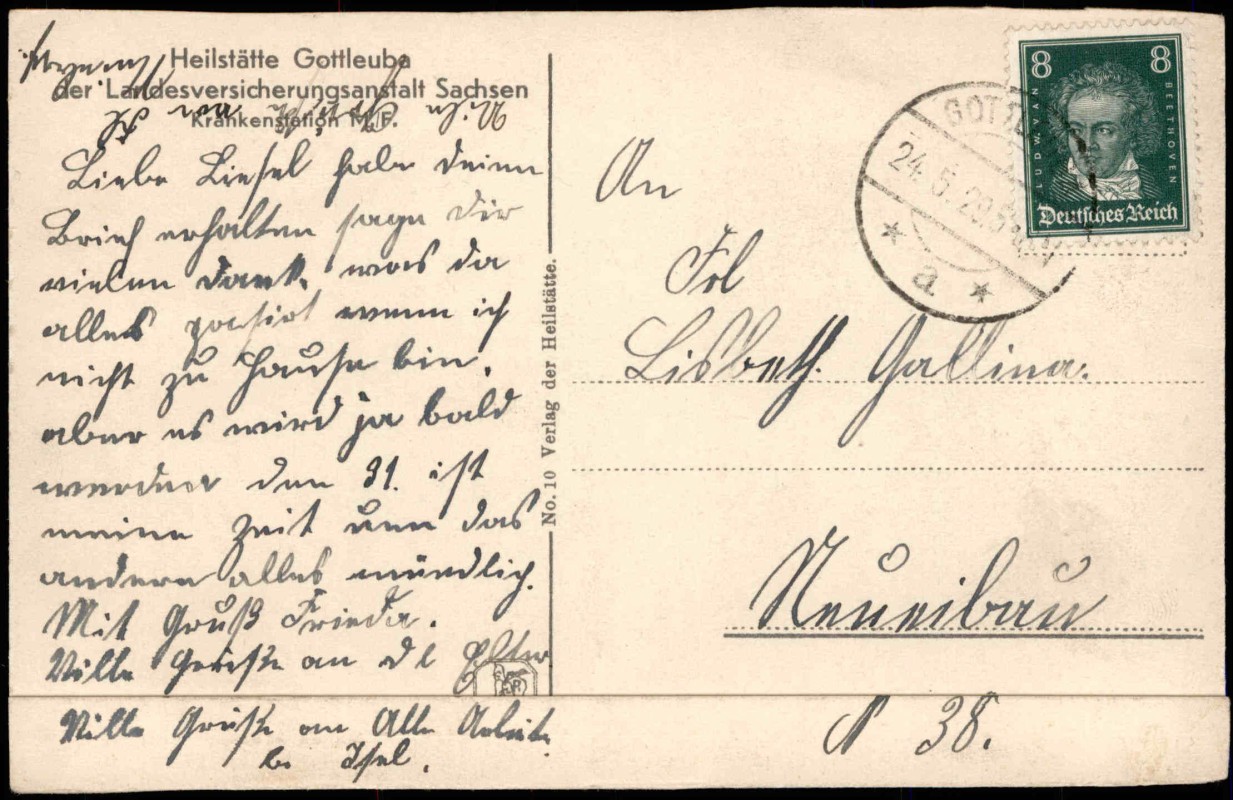 Heilstätte Gottleuba
der Landesversicherungsanstalt Sachsen
Krankenstation M. F.
Liebe Liesel habe deinen
Brief erhalten sage dir
vielen Dank, was da
alles passirt wenn ich
nicht zu Hause bin,
aber es wird ja bald
werden den 31. ist
meine Zeit umm das
andere alles mündlich.
Mit Gruß Frieda.
Ville Grüße an die Eltern
Ville Grüße an Alle
bei
No. 10 Verlag der Heilstätte.
8 8
LUDW. VAN BEETHOVEN
Deutsches Reich
GOTTL
24.5.29.
a
An
Frl
Lisbeth. Gallina.
Neueibau
N 38.